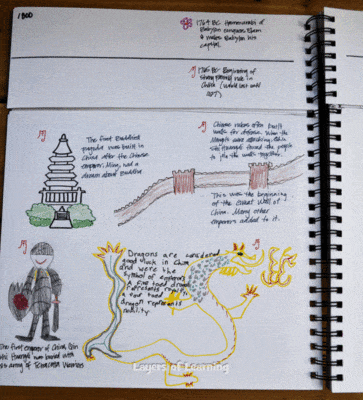 1800
1764 BC Hammurabi of
Babylon conquers Elam
& makes Babylon his
capital
BC Beginning of
Shang rule in
China (would last until
The First Buddhist
pagoda was built in
China after the Chinese
emperor, Ming, had a
dream about Buddha
Chinese rulers often built
walls for defense. When the
were attacking, Shi
Huangdi forced the people
to join the walls together.
This was the beginning
of the Great Wall of
China. Many other
emperors added to it.
Dragons are considered
good luck in China
and were the
symbol of emperors
A five toed dragon
represents royalty
four toed
dragon represents
nobility
The first emperor of China Qin
Shi Huangdi was buried with
army of Terracotta Warriors
Layers of Learning